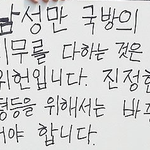 남성만 국방의
의무를 다하는 것은
위헌입니다. 진정한
평등을 위해서는 바뀌
어야 합니다.